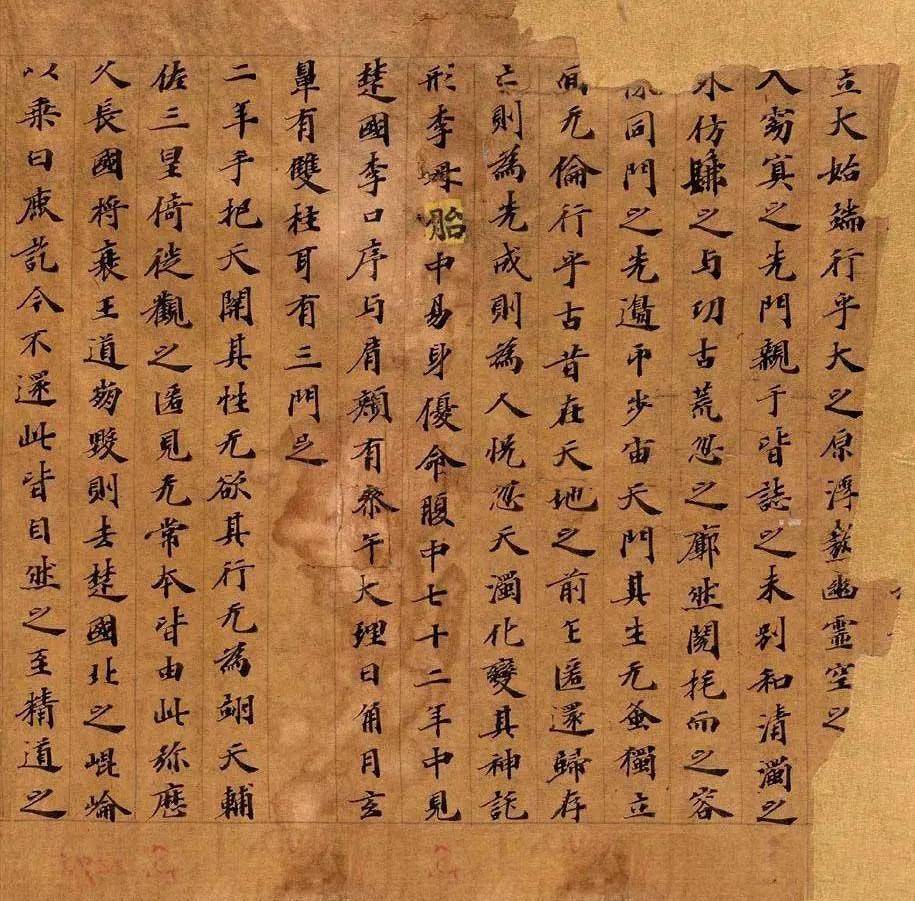 立大始端行乎大之原浮熬幽靈空之
入窈冥之先門親乎皆誌之未別和清濁之
仿之与功古荒忽之廓然閱托而之容
同門之先邊帀步宙天門其生无蚤獨立
而无倫行乎古昔在天地之前乍匿還歸存
亡則為先成則為人怳忽天濁化變其神託
形李母胎中易身優命腹中七十二年中見
楚國李口序与肩頰有参午大理日角月玄
鼻有雙柱耳有三門之
二年手把天開其性无欲其行无為翊天輔
佐三皇倚徙觀之匿見无常本皆由此弥歷
久長國將衰王道崩毀則去楚國北之崐崘
以乘白鹿訖今不還此皆自然之至精道之